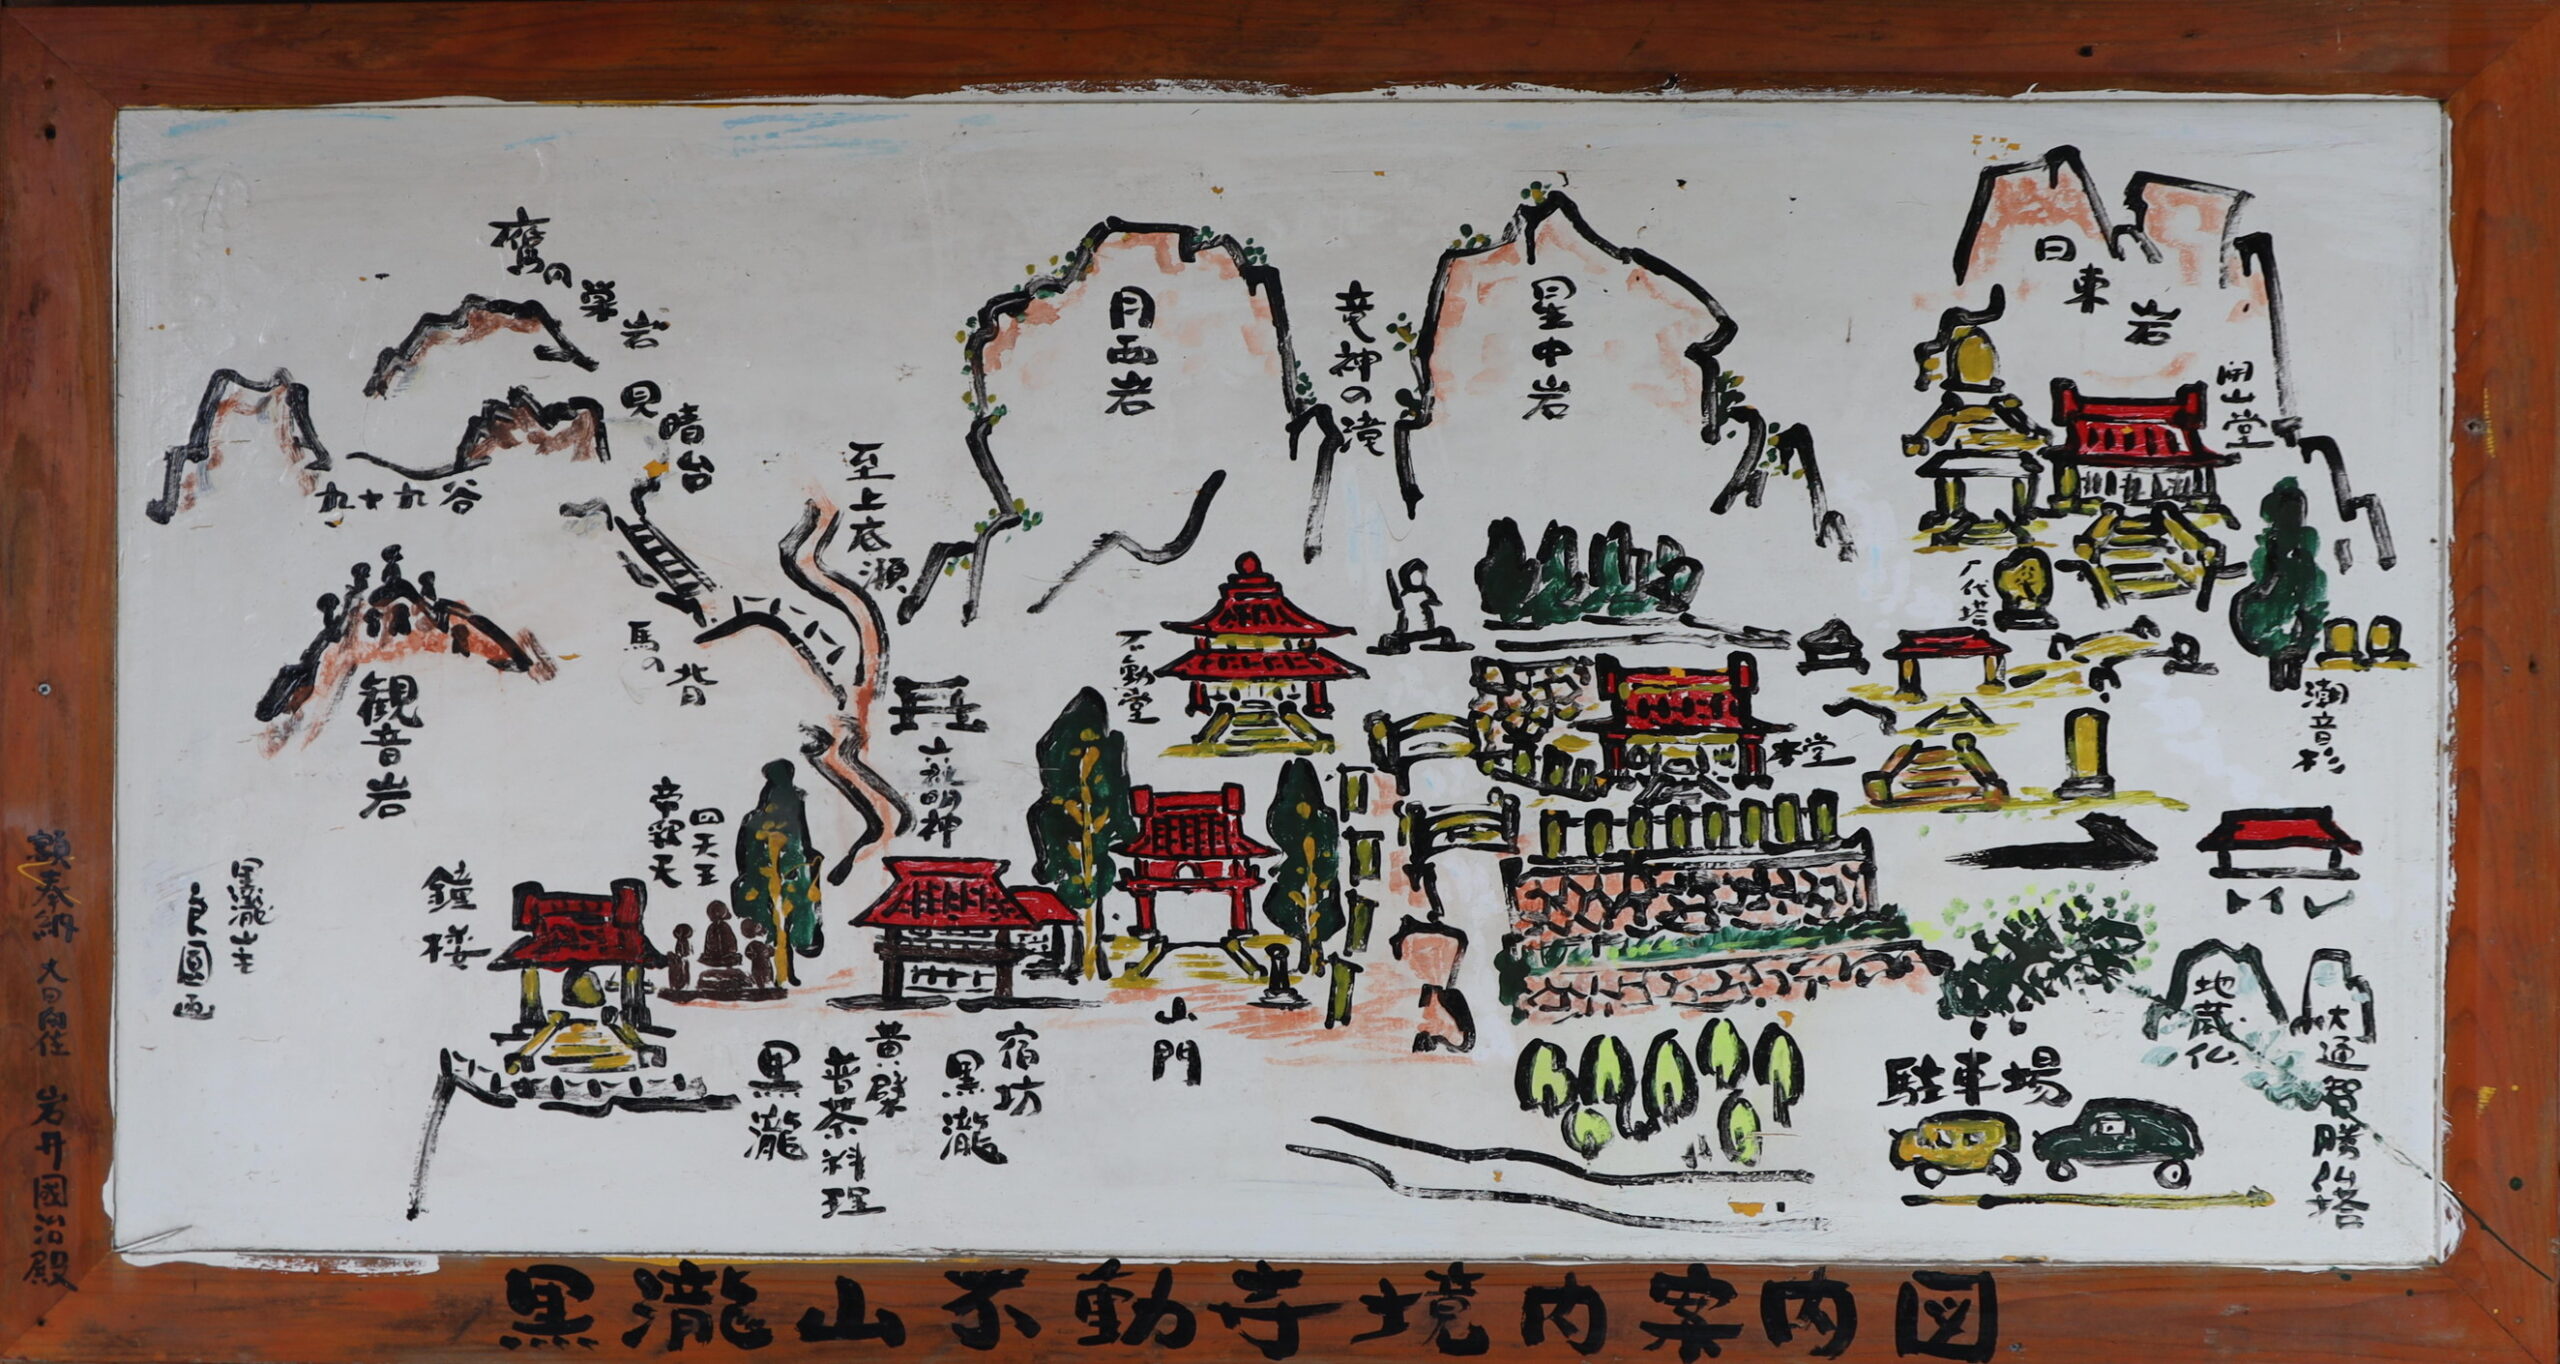 鷹の巣岩
見晴台
九十九谷
観音岩
馬の背
至上底瀬
月西岩
竜神の滝
星中岩
日東岩
開山堂
八代塔
潮音杉
不動堂
本堂
帝釈天
四天王
鐘楼
山門
宿坊
黒瀧
黄檗
普茶料理
黒瀧
トイレ
地蔵仏
大通智勝仏塔
駐車場
黒瀧山主
良圓画
額奉納 大日向住 岩井國治殿
黒瀧山不動寺境内案内図